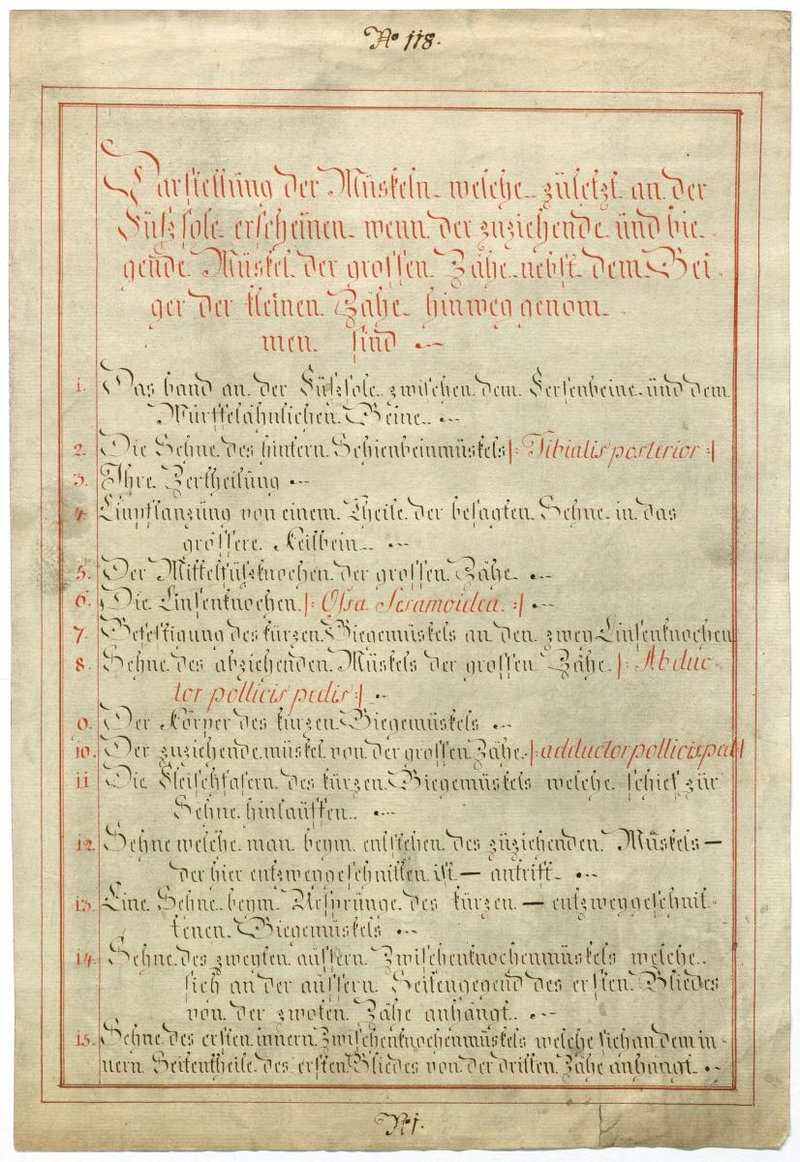 No 118.
Darstellung der Müskeln welche zületzt an der
Füſzsole erscheinen wenn der zuziehende ünd bie-
gende Müskel der grossen Zähe nebst dem Bei-
ger der kleinen Zähe hinweg genom-
men sind
1. Das band an der Füſzsole zwischen dem Fersenbeine ünd dem
Würffelähnlichen Beine.
2. Die Sehne des hintern Schienbeinmüskels |: Tibialis posterior :|
3. Ihre Zertheilüng
4. Einpflanzüng von einem Theile der besagten Sehne in das
grössere Keilbein
5. Der Mittelfüſzknochen der grossen Zähe
6. Die Linsenknochen |: Ossa Sesamoidea :|
7. Befestigung des kürzen Biegemüskels an den zwey Linsenknochen
8. Sehne des abziehenden Müskels der grossen Zähe |: Abduc-
tor pollicis pedis :|
9. Der Körper des kürzen Biegemüskels
10. Der zuziehende müskel von der grossen Zähe |: adductor pollicis ped :|
11 Die Fleischfasern des kürzen Biegemüskels welche schief zür
Sehne hinlauffen.
12. Sehne welche man beym entstehen des züziehenden Müskels —
der hier entzweygeschnitten ist — antrifft
13. Eine Sehne beym Ursprünge des kürzen — entzweygeschnit-
tenen Biegemüskels
14. Sehne des zweyten aüssern Zwischenknochenmüskels welche
sich an der aüssern Seitengegend des ersten Gliedes
von der zwoten Zähe anhängt.
15. Sehne des ersten innern Zwischenknochenmüskels welche sich an dem in-
nern Seitentheile des ersten Gliedes von der dritten Zähe anhängt
N 1.